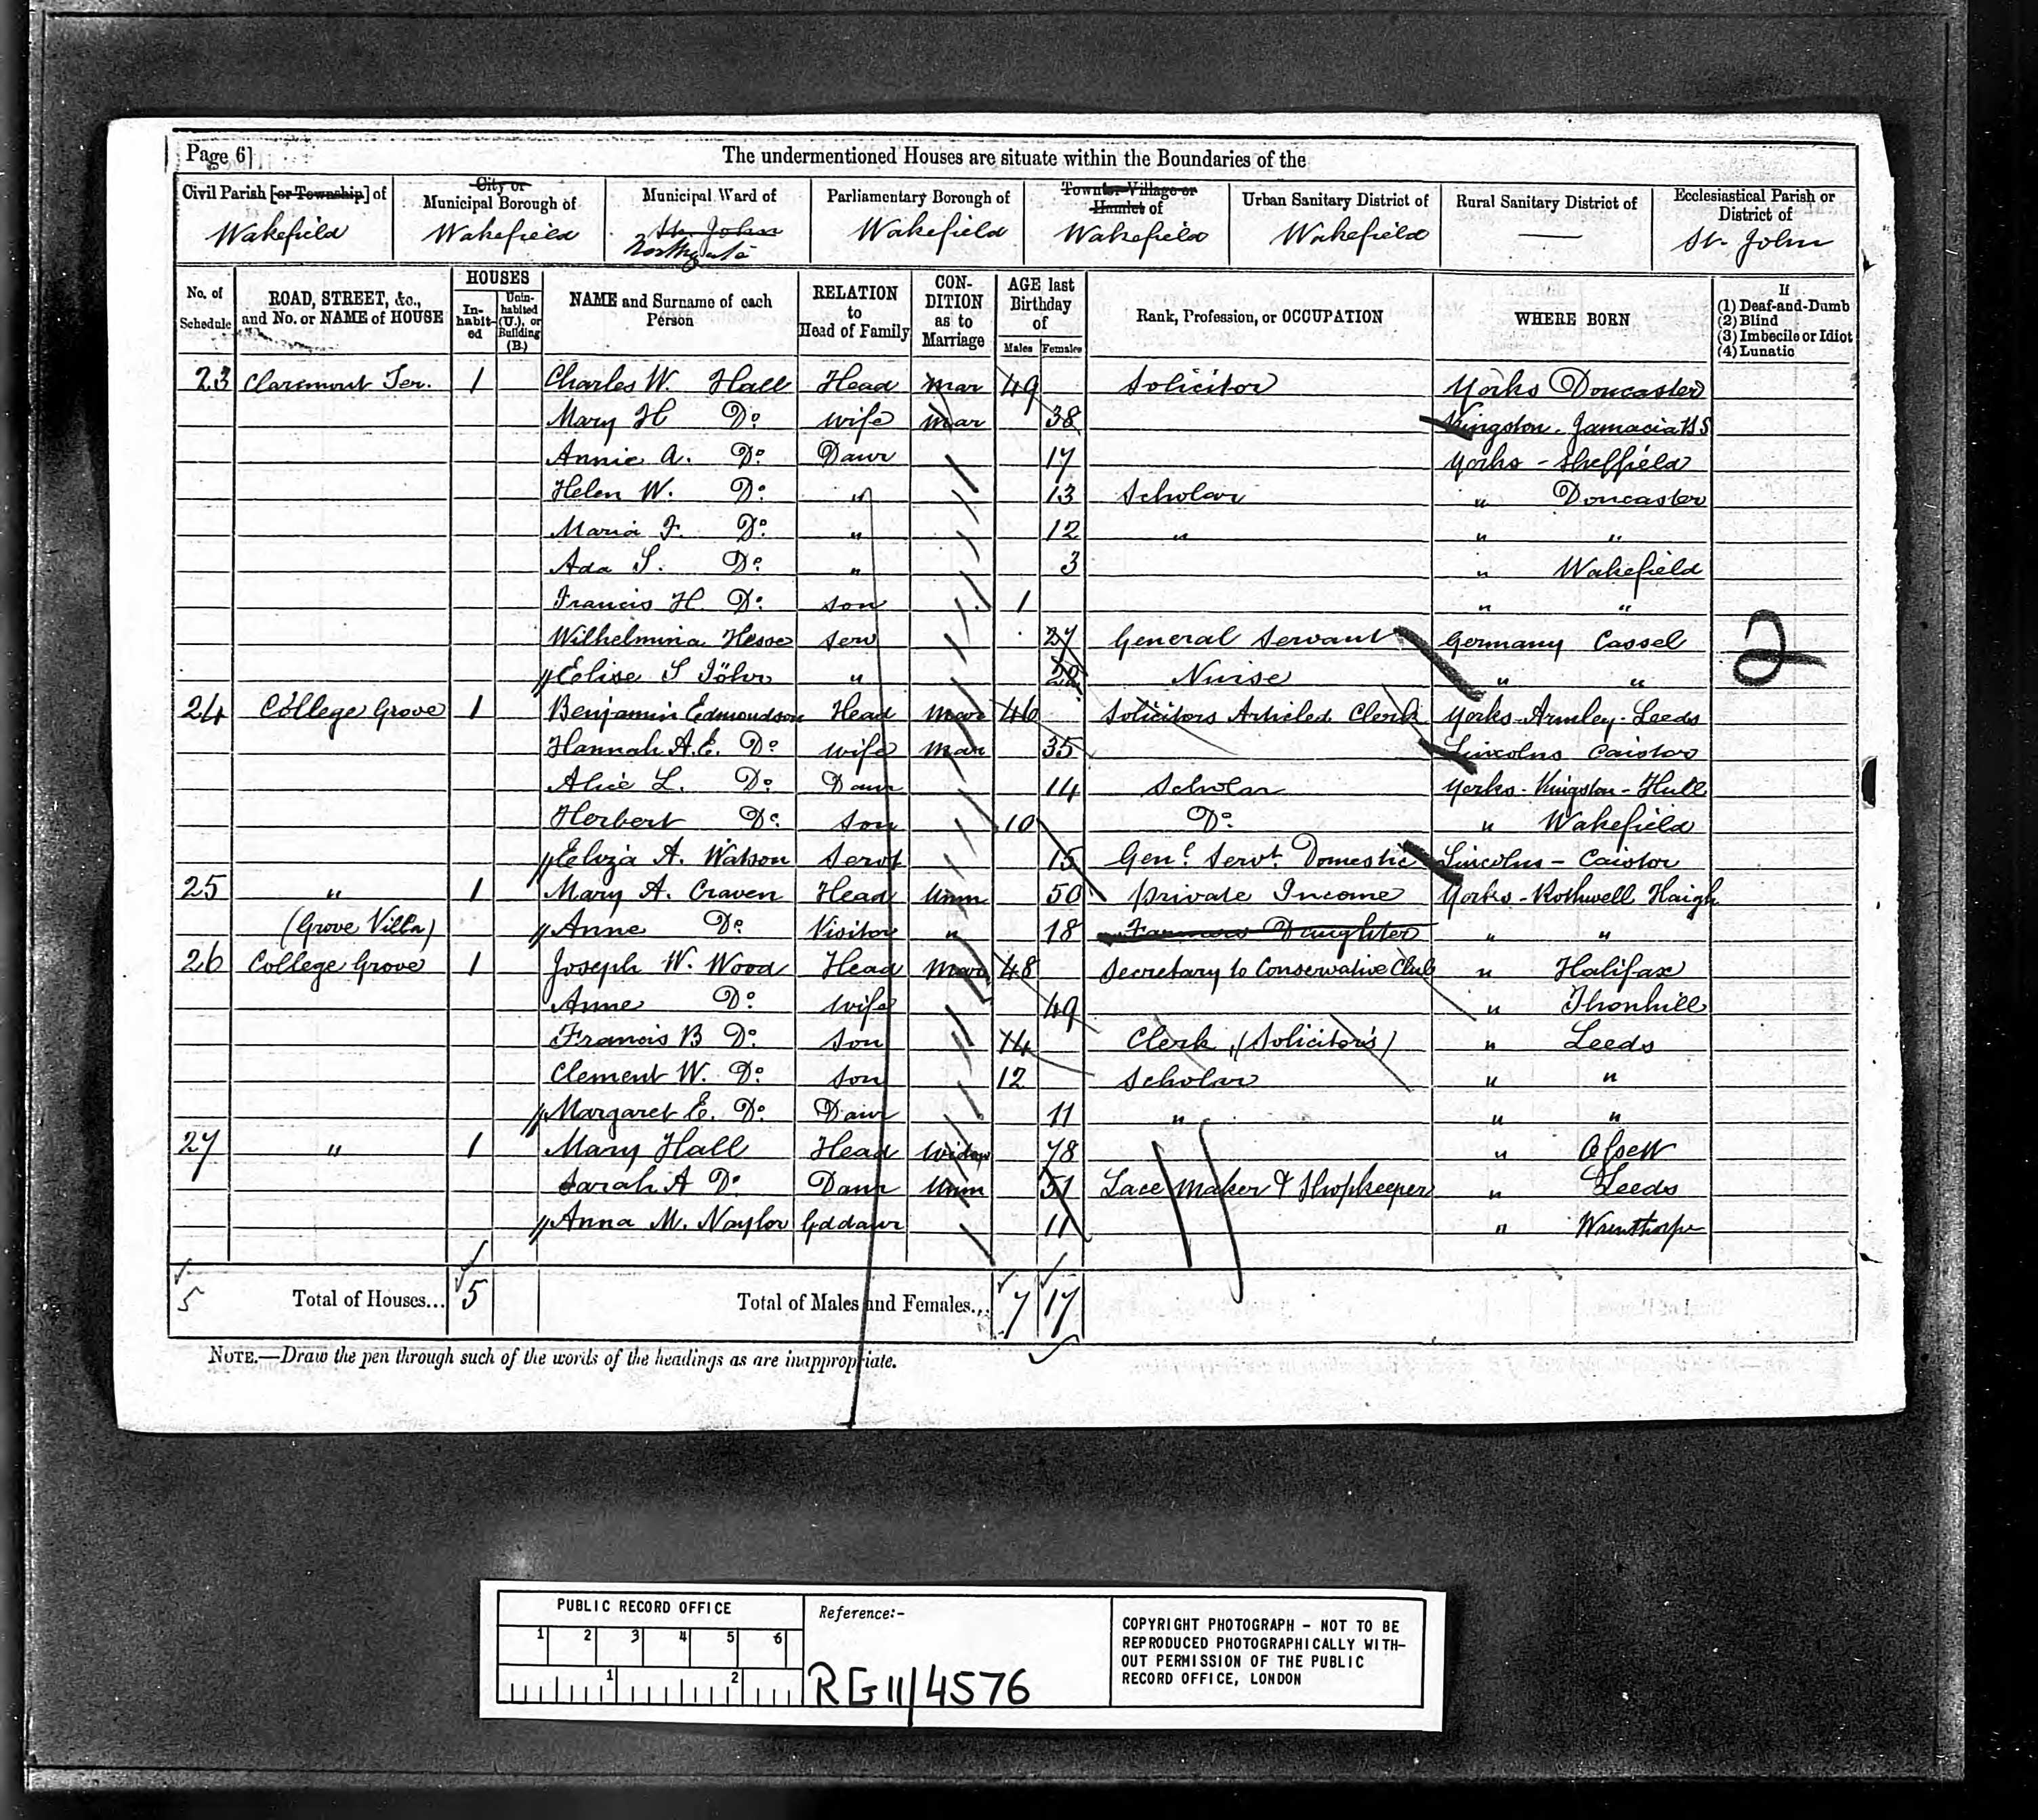 Page 6]
The undermentioned Houses are situate within the Boundaries of the
Civil Parish [or Township] of
Wakefield
City or
Municipal Borough of
Wakefield
Municipal Ward of
St. John
Northgate
Parliamentary Borough of
Wakefield
Town or Village or
Hamlet of
Wakefield
Urban Sanitary District of
Wakefield
Rural Sanitary District of
Ecclesiastical Parish or
District of
St. John
No. of
Schedule
ROAD, STREET, &c.,
and No. or NAME of HOUSE
HOUSES
In-
habit-
ed
Unin-
habited
(U.), or
Building
(B.)
NAME and Surname of each
Person
RELATION
to
Head of Family
CON-
DITION
as to
Marriage
AGE last
Birthday
of
Males Females
Rank, Profession, or OCCUPATION
WHERE BORN
If
(1) Deaf-and-Dumb
(2) Blind
(3) Imbecile or Idiot
(4) Lunatic
23 Claremont Ter. 1 Charles W. Hall Head Mar 49 Solicitor Yorks Doncaster
Mary H Do wife Mar 38 Kingston. Jamacia BS
Annie A. Do Daur 17 Yorks - Sheffield
Helen W. Do " 13 Scholar " Doncaster
Maria F. Do " 12 " " "
Ada S. Do " 3 " Wakefield
Francis H. Do son 1 " "
Wilhelmina Hesse serv 27 General Servant Germany Cassel
Elise S Töhr " Nurse " "
2
24 College Grove 1 Benjamin Edmondson Head Mar 46 Solicitors Articled Clerk Yorks-Armley-Leeds
Hannah A.E. Do wife Mar 35 Lincolns Caistor
Alice L. Do Daur 14 Scholar Yorks-Kingston-Hull
Herbert Do son 10 Do " Wakefield
Eliza A. Watson Servt 15 Genl. Servt. Domestic Lincolns - Caistor
25 " 1 Mary A. Craven Head Unm 50 private Income Yorks-Rothwell Haigh
(Grove Villa) Anne Do Visitor " 18 Farmers Daughter " "
26 College Grove 1 Joseph W. Wood Head Mar 48 Secretary to Conservative Club " Halifax
Anne Do wife 49 " Thonhill
Francis B Do Son 14 Clerk, (Solicitor's) " Leeds
Clement W. Do Son 12 Scholar " "
Margaret E. Do Daur 11 " " "
27 " 1 Mary Hall Head Widow 78 " Ossett
Sarah A Do Daur Unm 51 Lace maker & Shopkeeper " Leeds
Anna M. Naylor Gddaur 11 " Wrenthorpe
5 Total of Houses... 5 Total of Males and Females... 7 17
NOTE.—Draw the pen through such of the words of the headings as are inappropriate.
PUBLIC RECORD OFFICE
1 2 3 4 5 6
1 2
Reference:-
RG 11/4576
COPYRIGHT PHOTOGRAPH - NOT TO BE
REPRODUCED PHOTOGRAPHICALLY WITH-
OUT PERMISSION OF THE PUBLIC
RECORD OFFICE, LONDON